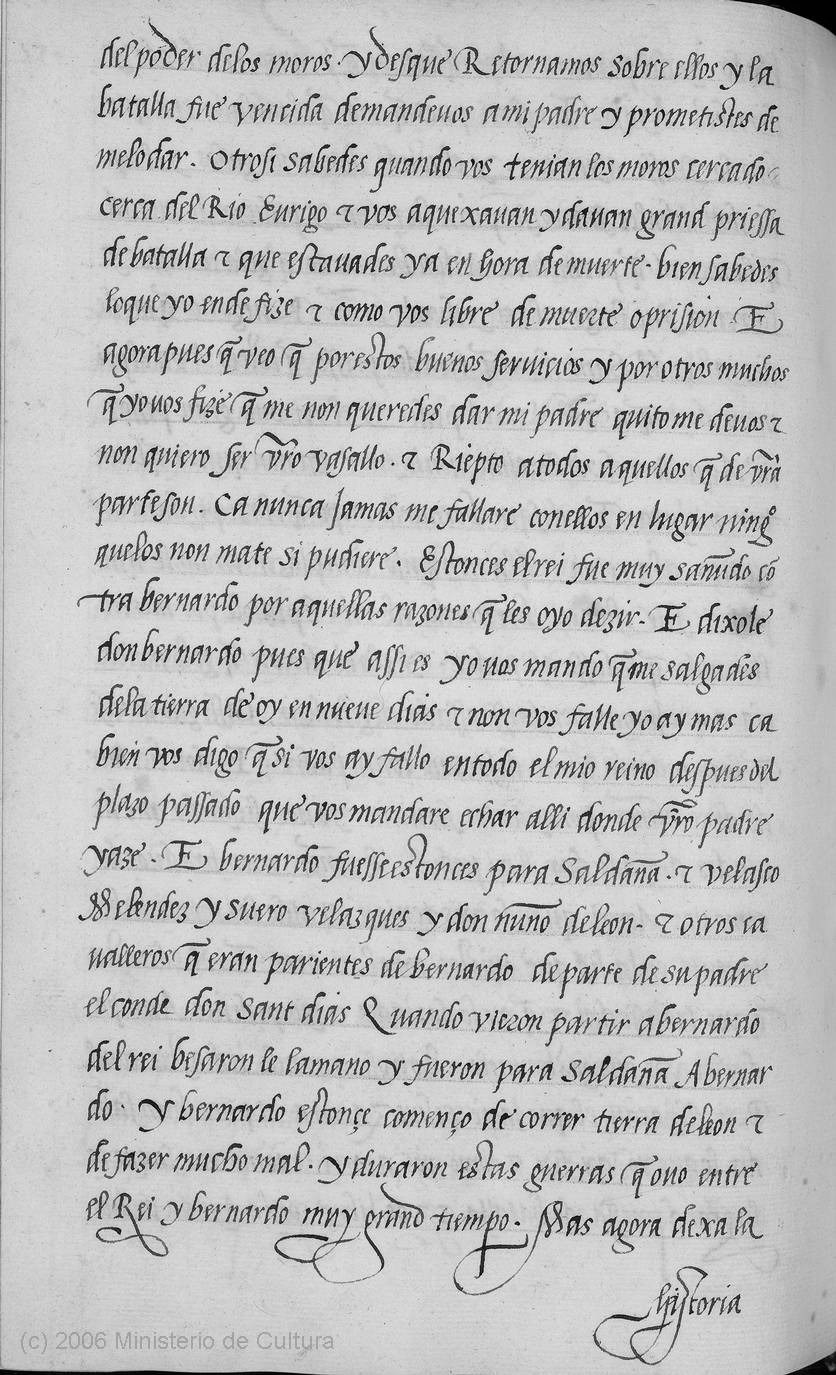 del poder delos moros. ydesque Retornamos sobre ellos y la
batalla fue vencida demandeuos a mi padre y prometistes de
melo dar. Otrosi sabedes quando vos tenian los moros cercado
cerca del Rio Eurigo ⁊ vos aquexauan y dauan grand priessa
de batalla ⁊ que estauades ya en hora de muerte. bien sabedes
lo que yo ende fize ⁊ como vos libre de muerte o prision. E
agora pues q̃ veo q̃ por estos buenos seruiçios y por otros muchos
q̃ yo uos fize q̃ me non queredes dar mi padre quito me de uos ⁊
non quiero ser vr̃o vasallo. ⁊ Riepto a todos aquellos q̃ de vr̃a
parte son. Ca nunca Jamas me fallare con ellos en lugar ningº
que los non mate si pudiere. Estonces el rei fue muy sañudo cõ
tra bernardo por aquellas razones q̃ les oyo dezir. E dixole
don bernardo pues que assi es yo uos mando q̃ me salgades
dela tierra de oy en nueve dias ⁊ non vos falle yo ay mas ca
bien vos digo q̃ si vos ay fallo en todo el mio reino despues del
plazo passado que vos mandare echar alli donde vr̃o padre
yaze. E bernardo fuesse estonces para Saldaña. ⁊ velasco
Melendez y suero velazques y don nuño de leon. ⁊ otros ca
ualleros q̃ eran parientes de bernardo de parte de su padre
el conde don Sant dias Quando vieron partir a bernardo
del rei besaron le la mano y fueron para Saldaña A bernar
do. y bernardo estonçe començo de correr tierra de leon ⁊
de fazer mucho mal. y duraron estas guerras q̃ ouo entre
el Rei y bernardo muy grand tiempo. Mas agora dexa la
historia
(c) 2006 Ministerio de Cultura